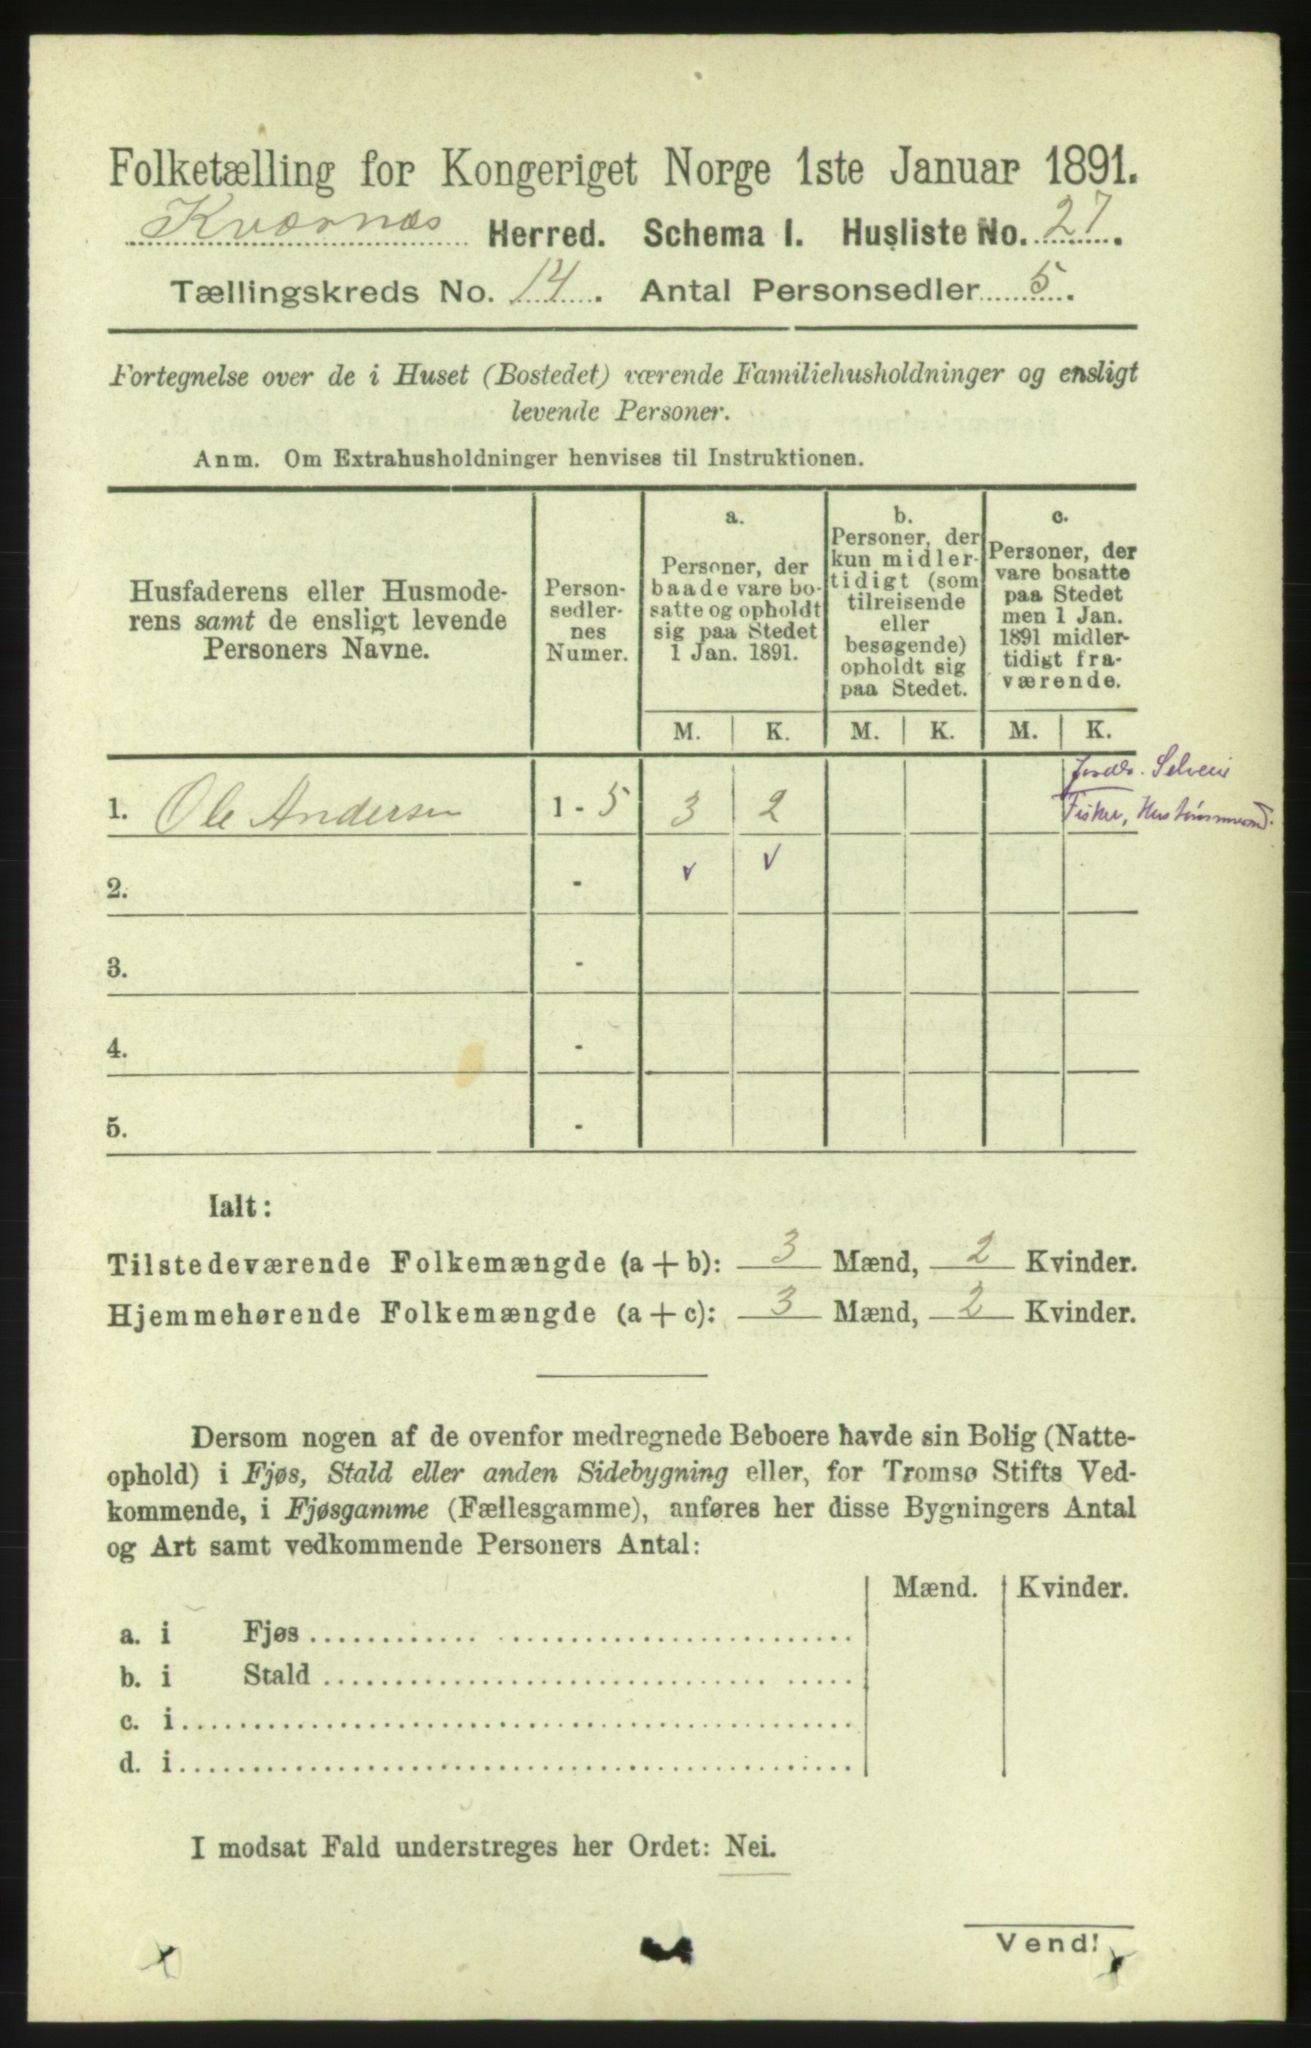 Folketælling for Kongeriget Norge 1ste Januar 1891.
Kværnæs Herred. Schema I. Husliste No. 27.
Tællingskreds No. 14. Antal Personsedler 5.
Fortegnelse over de i Huset (Bostedet) værende Familiehusholdninger og ensligt
levende Personer.
Anm. Om Extrahusholdninger henvises til Instruktionen.
Husfaderens eller Husmode-
rens samt de ensligt levende
Personers Navne.
Person-
sedler-
nes
Numer.
a.
Personer, der
baade vare bo-
satte og opholdt
sig paa Stedet
1 Jan. 1891.
b.
Personer, der
kun midler-
tidigt (som
tilreisende
eller
besøgende)
opholdt sig
paa Stedet.
c.
Personer, der
vare bosatte
paa Stedet
men 1 Jan.
1891 midler-
tidigt fra-
værende.
M. K. M. K. M. K.
Selveier
1. Ole Andersen 1 - 5 3 2 Fisker,
2. -
3. -
4. -
5. -
Ialt:
Tilstedeværende Folkemængde (a + b): 3 Mænd, 2 Kvinder.
Hjemmehørende Folkemængde (a + c): 3 Mænd, 2 Kvinder.
Dersom nogen af de ovenfor medregnede Beboere havde sin Bolig (Natte-
ophold) i Fjøs, Stald eller anden Sidebygning eller, for Tromsø Stifts Ved-
kommende, i Fjøsgamme (Fællesgamme), anføres her disse Bygningers Antal
og Art samt vedkommende Personers Antal:
Mænd. Kvinder.
a. i Fjøs
b. i Stald
c. i
d. i
I modsat Fald understreges her Ordet: Nei.
Vend!